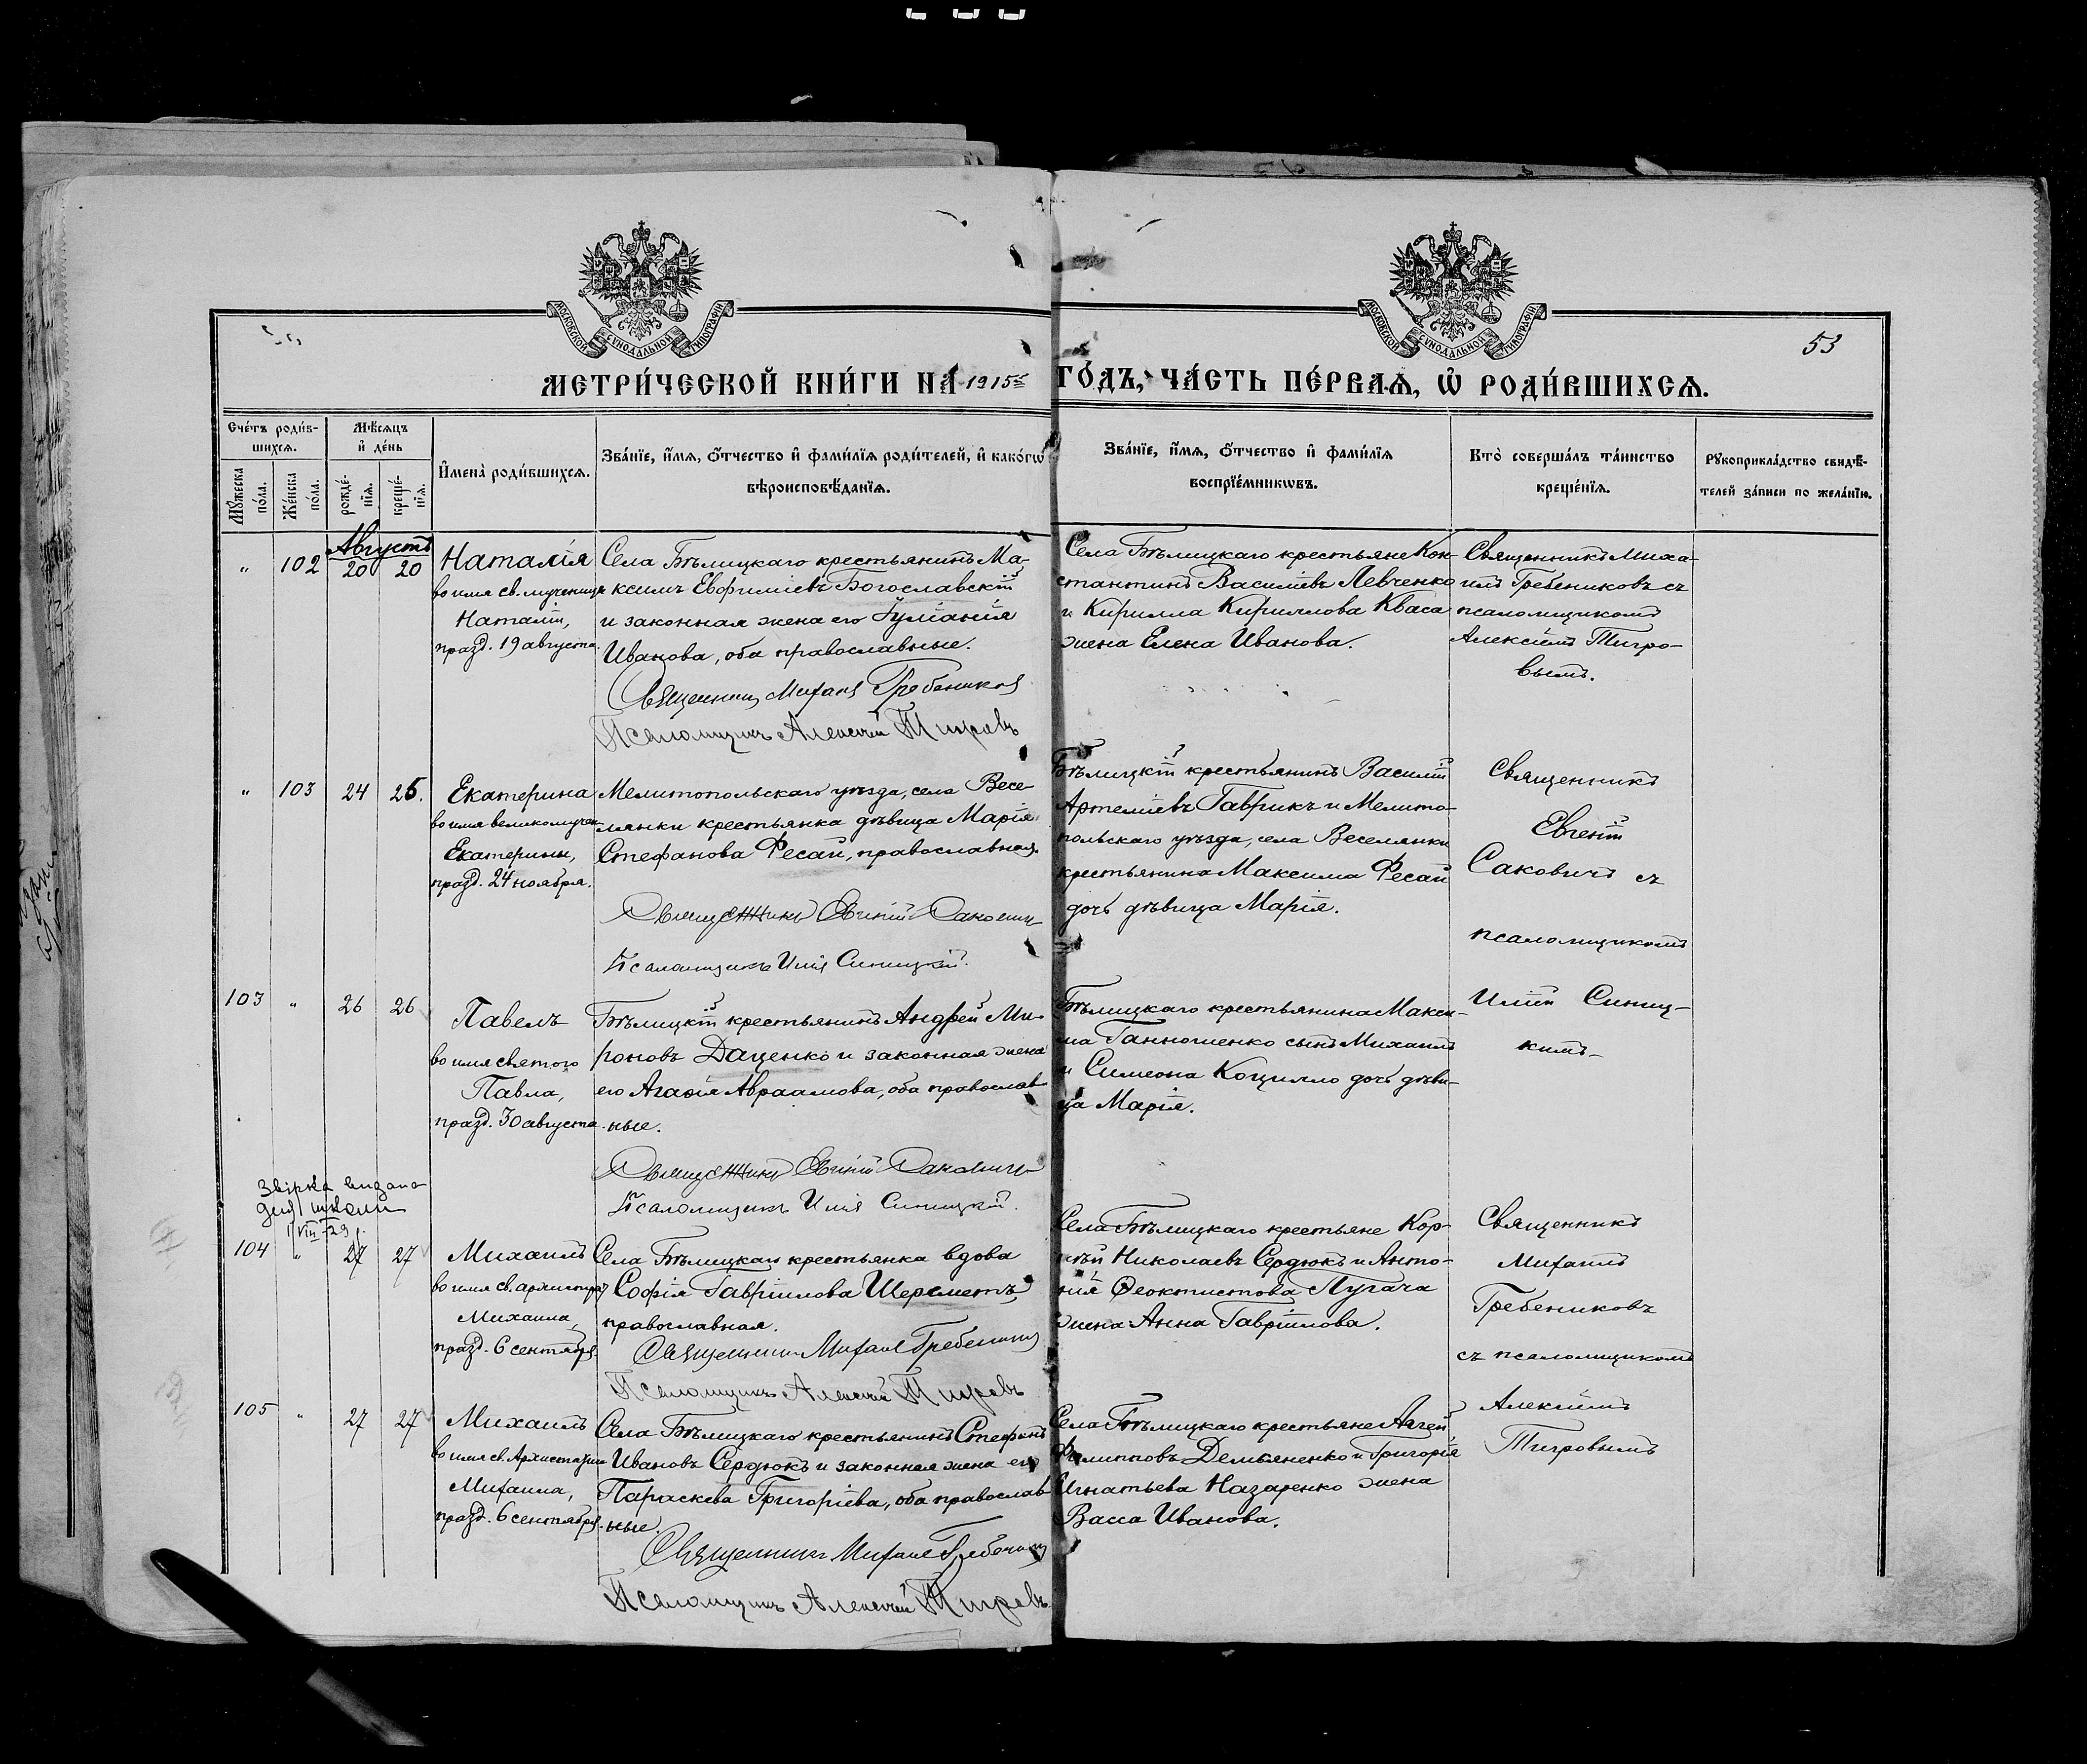 МОСКОВСКОЙ СѴНОДАЛЬНОЙ ТИПОГРАФІИ
МОСКОВСКОЙ СѴНОДАЛЬНОЙ ТИПОГРАФІИ
53
МЕТРИ́ЧЕСКОЙ КНИ́ГИ НА̀ 1915й ГО́ДЪ, ЧА́СТЬ ПЕ́РВАѦ, Ѡ҆ РОДИ́ВШИХСѦ.
Сче́тъ роди́в-
шихсѧ.
Мѣ́сѧцъ
и҆ де́нь
Мꙋ́жеска по́ла.
Же́нска по́ла.
рожде́-
нїѧ.
креще́-
нїѧ.
И҆мена̀ роди́вшихсѧ.
Зва́нїе, и҆́мѧ, ѻ҆́тчество и҆ фами́лїѧ роди́телей, и҆ како́гѡ
вѣроисповѣ́данїѧ.
Зва́нїе, и҆́мѧ, ѻ҆́тчество и҆ фами́лїѧ
воспрїе́мникѡвъ.
Кто̀ соверша́лъ та́инство
креще́нїѧ.
Рꙋкоприкла́дство свидѣ́-
телей за́писи по жела́нїю.
Августъ
„ 102 20 20
Наталія
во имя св. мученицы
Наталіи,
празд. 19 августа.
Села Бѣлицкаго крестьянинъ Ма-
ксимъ Евфиміевъ Богославскій
и законная жена его Гуліанія
Иванова, оба православные.
Священникъ Михаилъ Гребениковъ
Псаломщикъ Алексѣй Тигровъ
Села Бѣлицкаго крестьяне Кон-
стантинъ Василіевъ Левченко
и Кирилла Кириллова Кваса
жена Елена Иванова.
Священникъ Миха-
илъ Гребениковъ съ
псаломщикомъ
Алексіемъ Тигро-
вымъ.
„ 103 24 25.
Екатерина
во имя великомучен.
Екатерины,
празд. 24 ноября.
Мелитопольскаго уѣзда, села Весе-
лянки крестьянка дѣвица Марія
Стефанова Фесай, православная.
Священникъ Евгеній Саковичъ
Псаломщикъ Илія Синицкій.
Бѣлицкій крестьянинъ Василій
Артеміевъ Гаврикъ и Мелито-
польскаго уѣзда, села Веселянки
крестьянина Максима Фесай
дочь дѣвица Марія.
Священникъ
Евгеній
Саковичъ съ
псаломщикомъ
Иліей Синиц-
кимъ
103 „ 26 26
Павелъ
во имя святого
Павла,
празд. 30 августа.
Бѣлицкій крестьянинъ Андрей Ми-
роновъ Даценко и законная жена
его Агафія Авраамова, оба православ-
ные.
Священникъ Евгеній Саковичъ
Псаломщикъ Илія Синицкій.
Бѣлицкаго крестьянина Макси-
ма Ганношенко сынъ Михаилъ
и Симеона Коцилло дочь дѣви-
ца Марія.
Звірка видана
для школи
1 VIII-29 р.
104 „ 27 27
Михаилъ
во имя св. архистрат.
Михаила,
празд. 6 сентября.
Села Бѣлицкаго крестьянка вдова
Софія Гавріилова Шереметъ,
православная.
Священникъ Михаилъ Гребениковъ
Псаломщикъ Алексѣй Тигровъ
Села Бѣлицкаго крестьяне Кор-
нѣй Николаевъ Сердюкъ и Анто-
нія Ѳеоктистова Пугача
жена Анна Гавріилова.
Священникъ
Михаилъ
Гребениковъ
съ псаломщикомъ
Алексіемъ
Тигровымъ
105 „ 27 27
Михаилъ
во имя св. Архистратига
Михаила,
празд. 6 сентября.
Села Бѣлицкаго крестьянинъ Стефанъ
Ивановъ Сердюкъ и законная жена его
Параскева Григоріева, оба православ-
ные.
Священникъ Михаилъ Гребениковъ
Псаломщикъ Алексѣй Тигровъ
Села Бѣлицкаго крестьяне Аггей
Филипповъ Демьяненко и Григорія
Игнатьева Назаренко жена
Васса Иванова.